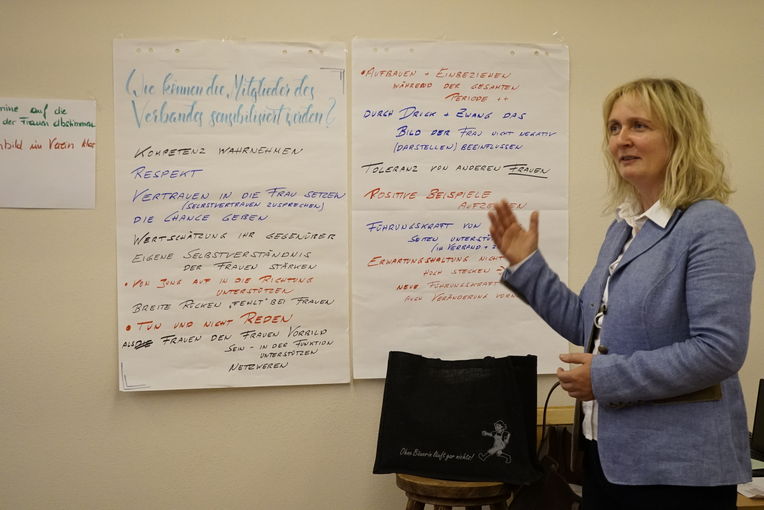 mine auf die
der Frauen abstimmen
nbild im Verein klar
Wie können die Mitglieder des
Verbandes sensibilisiert werden?
KOMPETENZ WAHRNEHMEN
RESPEKT
VERTRAUEN IN DIE FRAU SETZEN
(SELBSTVERTRAUEN ZUSPRECHEN)
DIE CHANCE GEBEN
WERTSCHÄTZUNG IHR GEGENÜBER
EIGENE SELBSTVERSTÄNDNIS
DER FRAUEN STÄRKEN
• VON JUNG AUF IN DIE RICHTUNG
UNTERSTÜTZEN
BREITE RÜCKEN „FEHLT" BEI FRAUEN
• TUN UND NICHT REDEN
ALS FRAUEN DEN FRAUEN VORBILD
SEIN - IN DER FUNKTION
UNTERSTÜTZEN
NETZWERKEN
• AUFBAUEN + EINBEZIEHEN
WÄHREND DER GESAMTEN
PERIODE ++
DURCH DRUCK + ZWANG DAS
BILD DER FRAU NICHT NEGATIV
(DARSTELLEN) BEEINFLUSSEN
TOLERANZ VON ANDEREN FRAUEN
POSITIVE BEISPIELE
AUFZEIGEN
FÜHRUNGSKRAFT VON
SEITEN UNTERSTÜ
(IM VERBAND +
ERWARTUNGSHALTUNG NICHT
HOCH STECKEN →
NEUE FÜHRUNGSKRAFT
AUCH VERÄNDERUNG
Ohne Bäuerin läuft gar nichts!